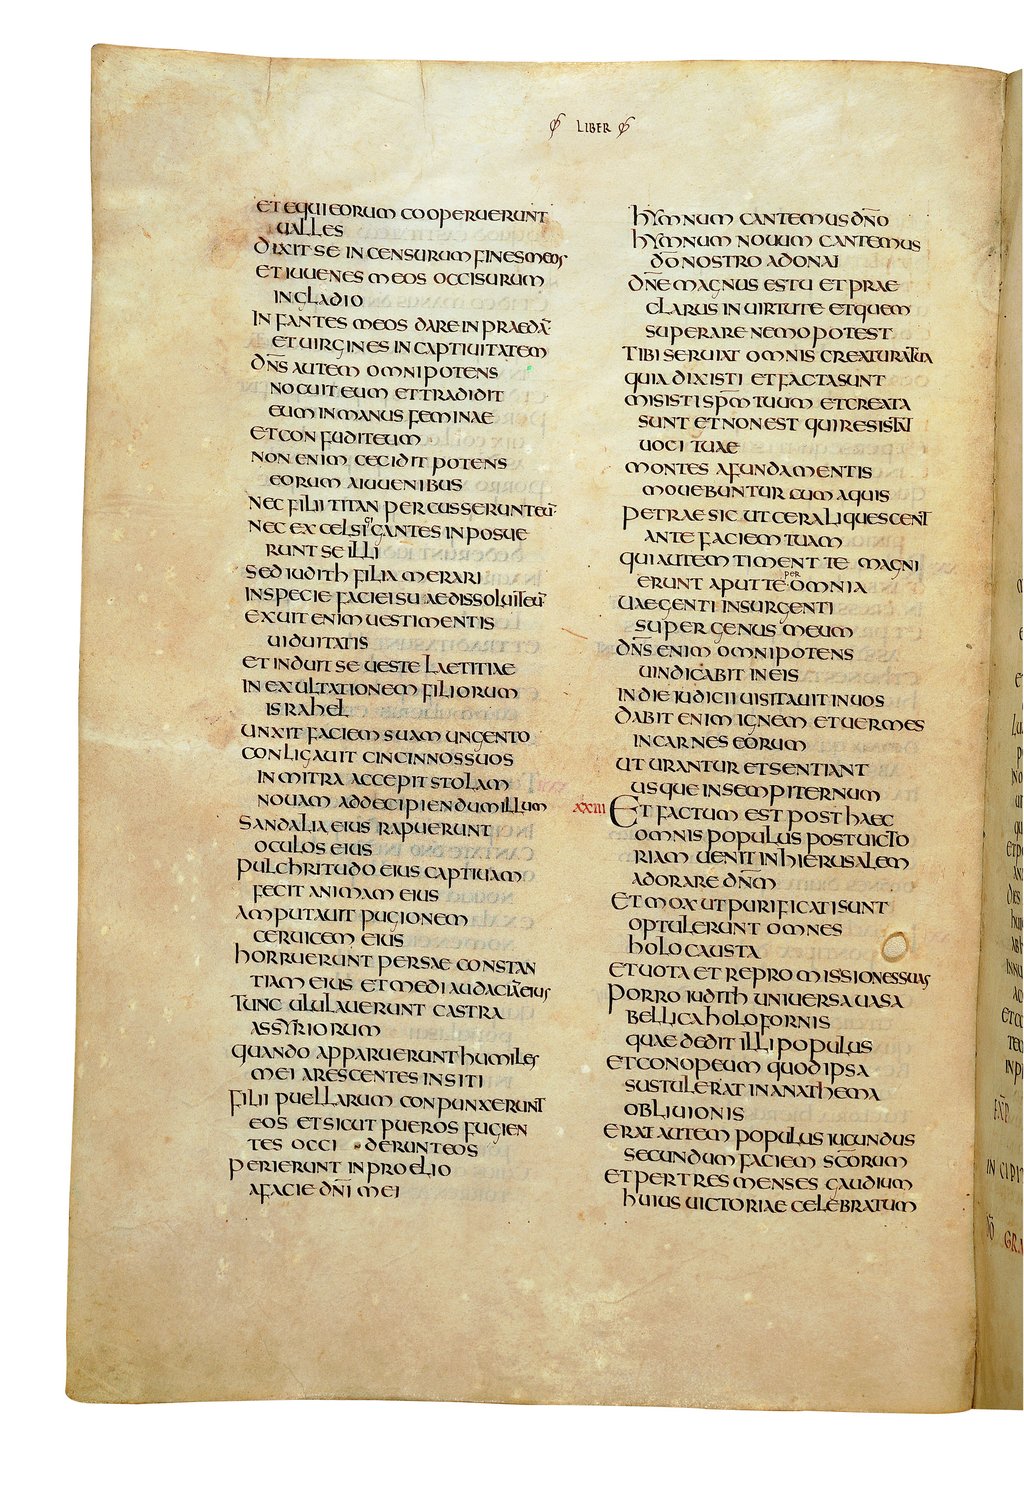 LIBER
ET EQUI EORUM COOPERUERUNT
UALLES
DIXIT SE INCENSURUM FINES MEOS
ET IUUENES MEOS OCCISURUM
IN GLADIO
INFANTES MEOS DARE IN PRAEDĀ
ET UIRGINES IN CAPTIUITATEM
DN̄S AUTEM OMNIPOTENS
NOCUIT EUM ET TRADIDIT
EUM IN MANUS FEMINAE
ET CONFUDIT EUM
NON ENIM CECIDIT POTENS
EORUM A IUUENIBUS
NEC FILII TITAN PERCUSSERUNT EŪ
NEC EXCELSI GIGANTES INPOSUE
RUNT SE ILLI
SED IUDITH FILIA MERARI
IN SPECIE FACIEI SUAE DISSOLUIT EŪ
EXUIT ENIM UESTIMENTIS
UIDUITATIS
ET INDUIT SE UESTE LAETITIAE
IN EXULTATIONEM FILIORUM
ISRAHEL
UNXIT FACIEM SUAM UNGENTO
CONLIGAUIT CINCINNOS SUOS
IN MITRA ACCEPIT STOLAM
NOUAM AD DECIPIENDUM ILLUM
SANDALIA EIUS RAPUERUNT
OCULOS EIUS
PULCHRITUDO EIUS CAPTIUAM
FECIT ANIMAM EIUS
AMPUTAUIT PUGIONEM
CERUICEM EIUS
HORRUERUNT PERSAE CONSTAN
TIAM EIUS ET MEDI AUDACIĀ EIUS
TUNC ULULAUERUNT CASTRA
ASSYRIORUM
QUANDO APPARUERUNT HUMILES
MEI ARESCENTES IN SITI
FILII PUELLARUM CONPUNXERUNT
EOS ET SICUT PUEROS FUGIEN
TES OCCIDERUNT EOS
PERIERUNT IN PROELIO
A FACIE DN̄I MEI
HYMNUM CANTEMUS DN̄O
HYMNUM NOUUM CANTEMUS
DŌ NOSTRO ADONAI
DN̄E MAGNUS ES TU ET PRAE
CLARUS IN UIRTUTE ET QUEM
SUPERARE NEMO POTEST
TIBI SERUIAT OMNIS CREATURA TUA
QUIA DIXISTI ET FACTA SUNT
MISISTI SPM̄ TUUM ET CREATA
SUNT ET NON EST QUI RESISTAT
UOCI TUAE
MONTES A FUNDAMENTIS
MOUEBUNTUR CUM AQUIS
PETRAE SICUT CERA LIQUESCENT
ANTE FACIEM TUAM
QUI AUTEM TIMENT TE MAGNI
ERUNT APUT TE PER OMNIA
UAE GENTI INSURGENTI
SUPER GENUS MEUM
DN̄S ENIM OMNIPOTENS
UINDICABIT IN EIS
IN DIE IUDICII UISITAUIT IN UOS
DABIT ENIM IGNEM ET UERMES
IN CARNES EORUM
UT URANTUR ET SENTIANT
USQUE IN SEMPITERNUM
XXIII ET FACTUM EST POST HAEC
OMNIS POPULUS POST UICTO
RIAM UENIT IN HIERUSALEM
ADORARE DN̄M
ET MOX UT PURIFICATI SUNT
OPTULERUNT OMNES
HOLOCAUSTA
ET UOTA ET REPROMISSIONES SUAS
PORRO IUDITH UNIUERSA UASA
BELLICA HOLOFORNIS
QUAE DEDIT ILLI POPULUS
ET CONOPEUM QUOD IPSA
SUSTULERAT IN ANATHEMA
OBLIUIONIS
ERAT AUTEM POPULUS IUCUNDUS
SECUNDUM FACIEM SC̄ORUM
ET PER TRES MENSES GAUDIUM
HUIUS UICTORIAE CELEBRATUM